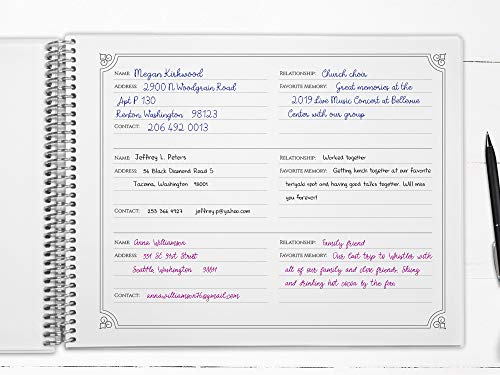 Name: Megan Kirkwood
Relationship: Church choir
Address: 2900 N Woodgrain Road
Favorite Memory: Great memories at the
Apt P 130
2019 Live Music Concert at Bellevue
Renton, Washington 98123
Center with our group
Contact: 206 492 0013
Name: Jeffrey L. Peters
Relationship: Worked together
Address: 56 Black Diamond Road S
Favorite Memory: Getting lunch together at our favorite
Tacoma, Washington 98001
teriyaki spot and having good talks together. Will miss
you forever!
Contact: 253 366 4927 jeffreyp@yahoo.com
Name: Anna Williamson
Relationship: Family friend
Address: 551 SE 31st Street
Favorite Memory: Our last trip to Whistler with
Seattle, Washington
all of our family and close friends. Skiing
and drinking hot cocoa by the fire.
Contact: annawilliamson76@gmail.com